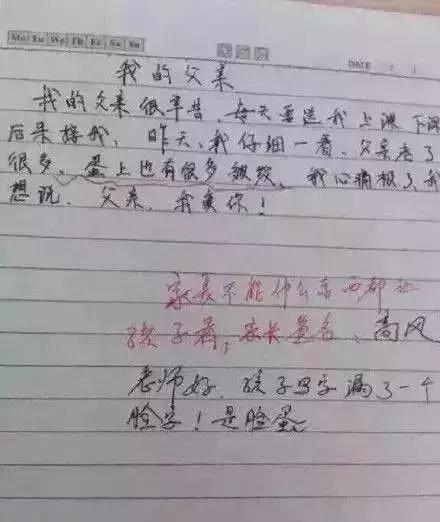 Mo Tu We Th Fr Sa Su
DATE / /
我的父亲
我的父亲很辛苦、每天要送我上课下课
后来接我、昨天、我仔细一看、父亲老了
很多、蛋上也有很多皱纹、我心痛极了、我
想说、父亲、我爱你！
家长不能什么东西都让
孩子看；家长签名、高风
老师好、孩子写字漏了一个
脸字！是脸蛋